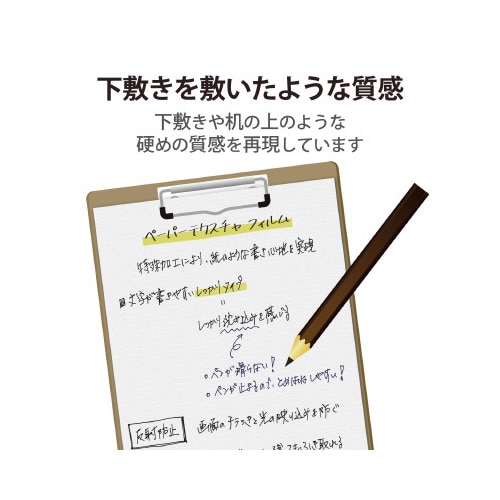 下敷きを敷いたような質感
下敷きや机の上のような
硬めの質感を再現しています
ペーパーテクスチャフィルム
特殊加工により、紙のような書き心地を実現
文字が書きやすいしっかりタイプ
=
しっかり沈み込みを感じる
。ペンが滑らない!
。ペンが止まるので、とめはねしやすい!
反射防止
画面のチラつきと光の映り込みを防ぐ
取れる